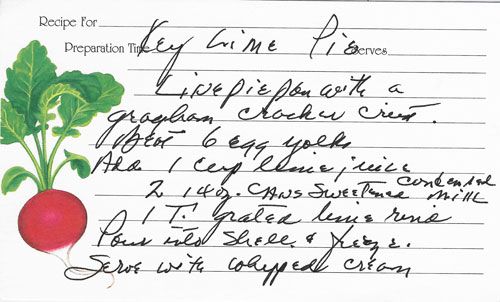 Recipe For
Key Lime Pie
Preparation Time Serves
Line pie pan with a
gragham cracker crust.
Beat 6 egg yolks
Add 1 cup lime juice
2 14 oz. cans sweetened condensed milk
1 T. grated lime rind
Pour into shell & freeze.
Serve with whipped cream